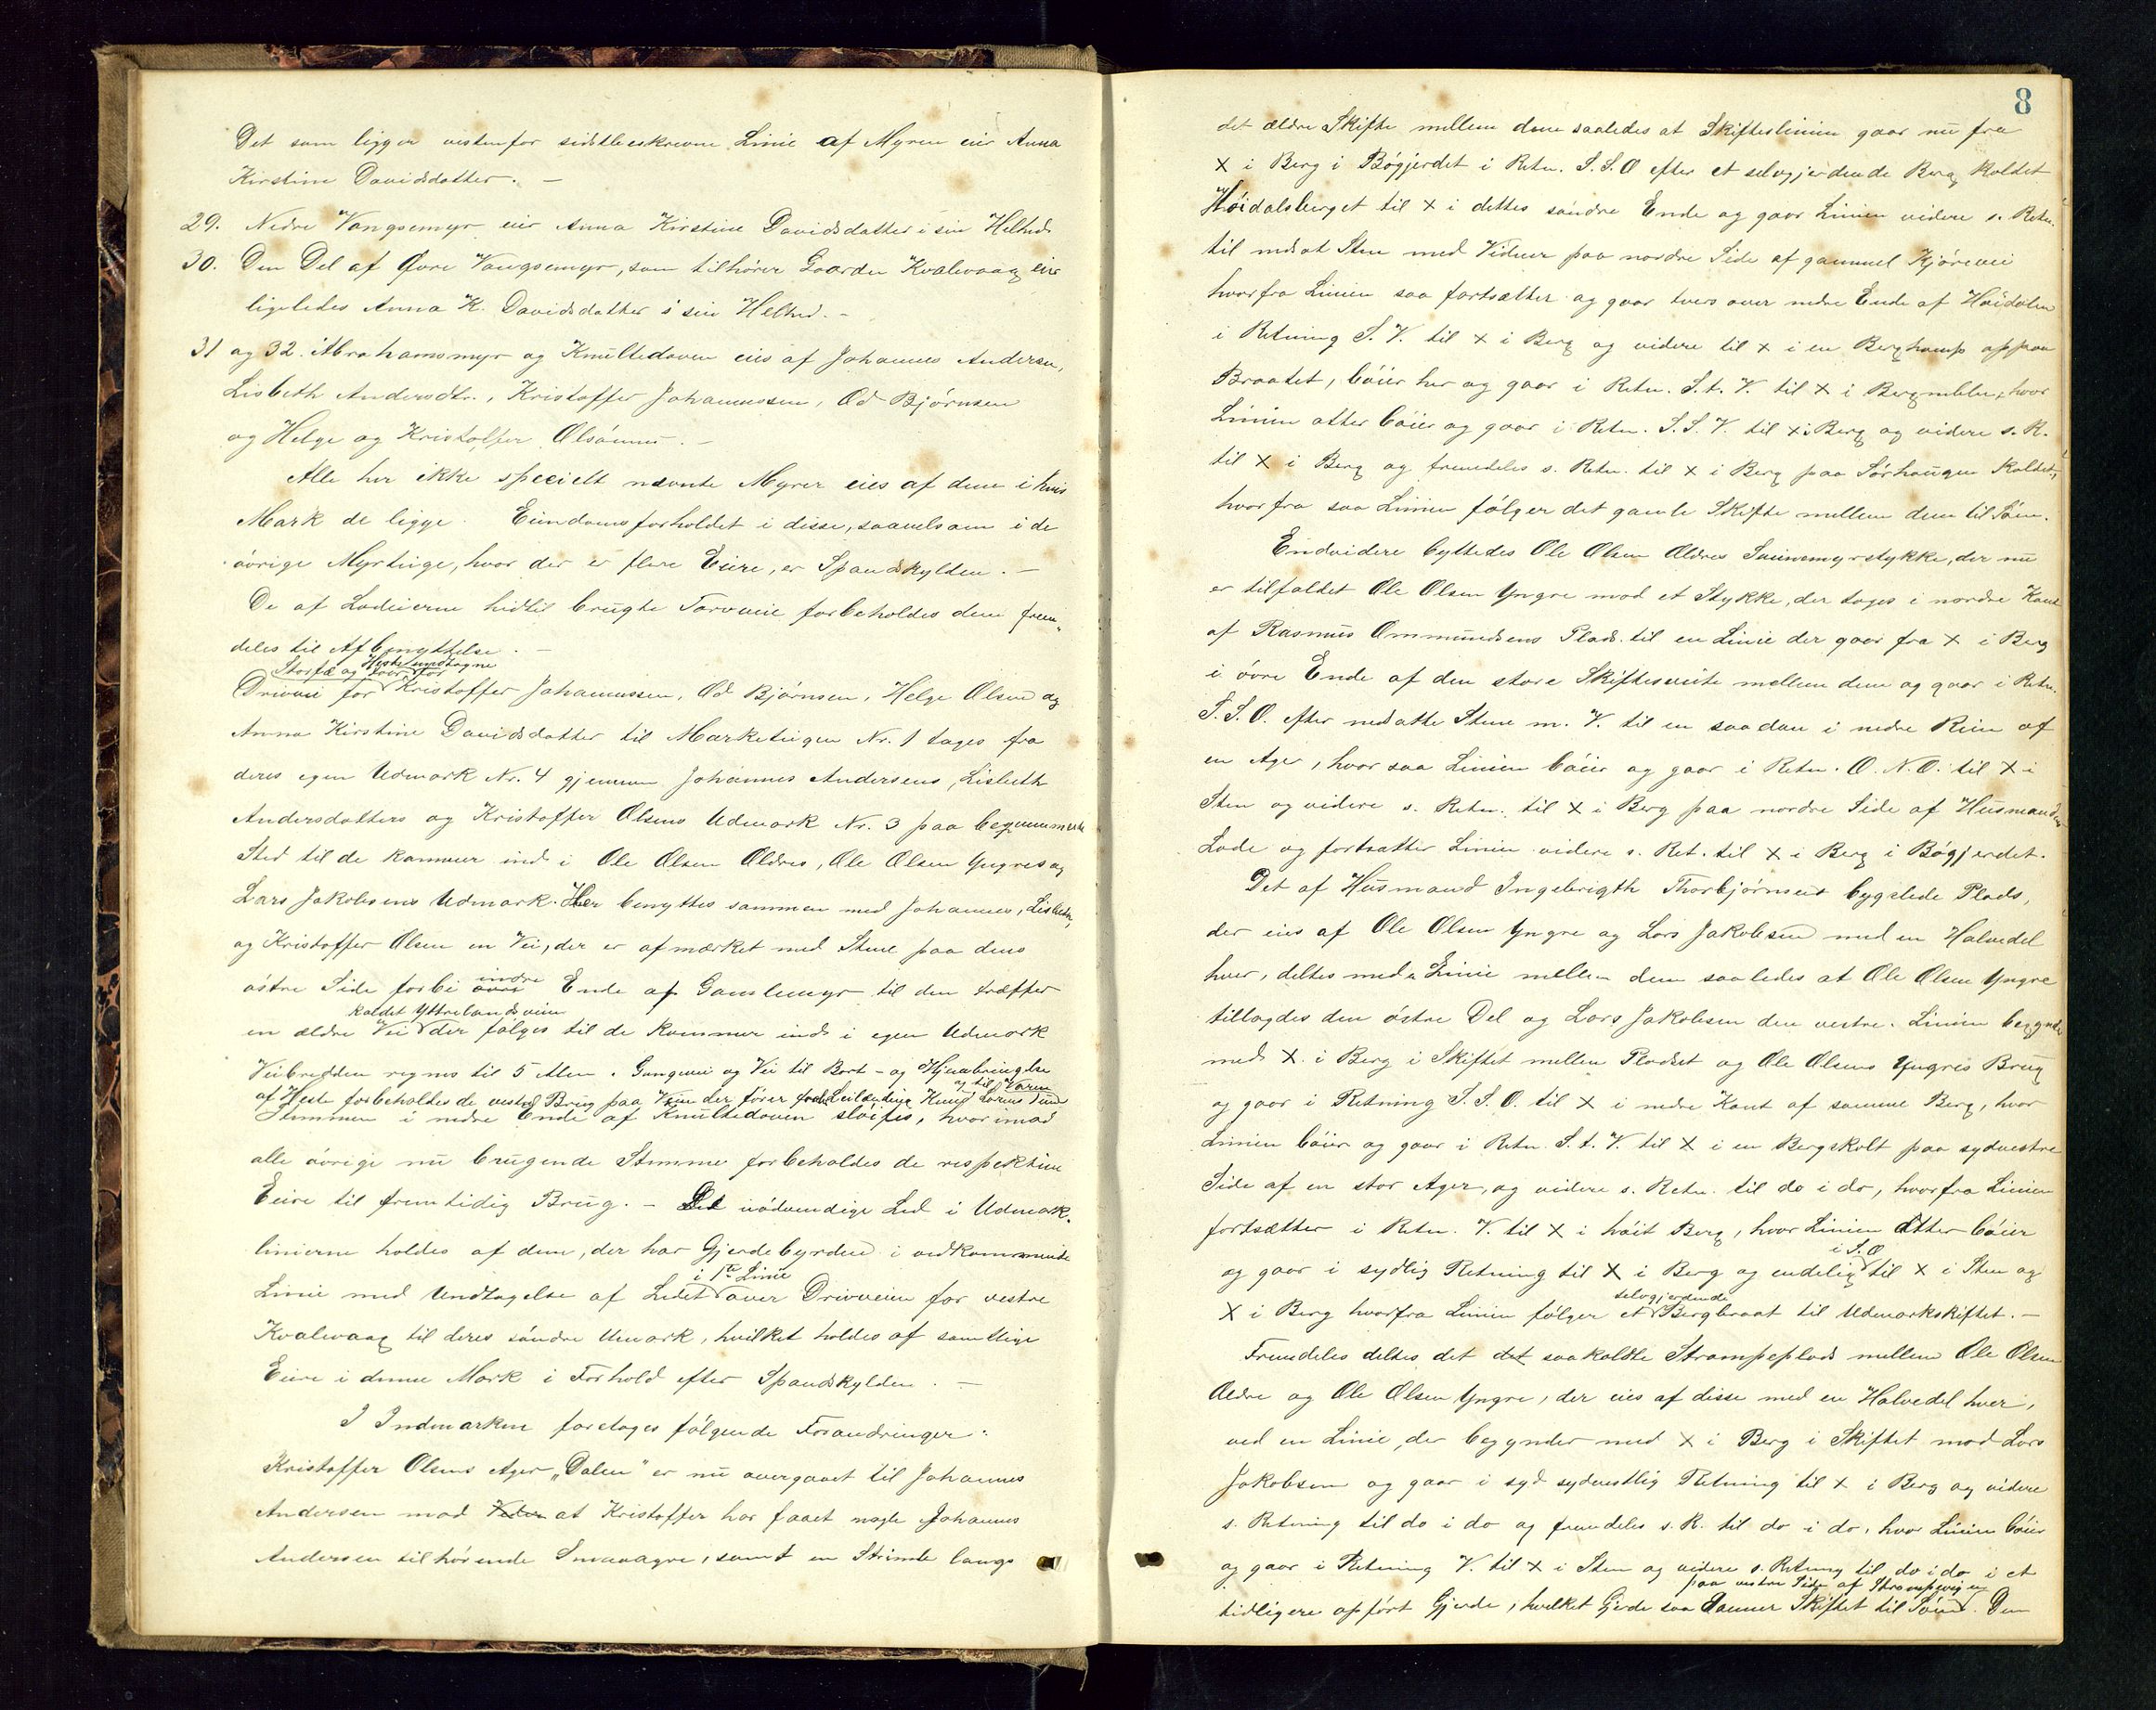 Det som ligger vestenfor sidstbeskrevne Linie af Myren eier Anna
Kirstine Davidsdatter. —
29. Nedre Vangsemyr eier Anna Kirstine Davidsdatter i sin Helhed
30. Den Del af Øvre Vangsemyr, som tilhører Gaarden Kvalevaag eier
ligeledes Anna K. Davidsdatter i sin Helhed. —
31 og 32. Abrahamsmyr og Knultedaven eies af Johannes Andersen,
Lisbeth Andersdtr., Kristoffer Johannessen, Od Bjørnsen
og Helge og Kristoffer Olsønner. —
Alle her ikke specielt nævnte Myrer eies af dem i hvis
Mark de ligge. Eiendomsforholdet i disse, saavelsom i de
øvrige Myrteige, hvor der er flere Eiere, er Spandskylden. —
De af Lodeierne hidtil brugte Torvveie forbeholdes dem frem-
deles til Afbenyttelse. —
Storfæ og Heste undtagne
Driveei for Kristoffer Johannessen, Od Bjørnsen, Helge Olsen og
Anna Kirstine Davidsdatter til Marketeigen Nr. 1 tages fra
deres egen Udmark Nr. 4 gjennem Johannes Andersens, Lisbeth
Andersdatters og Kristoffer Olsens Udmark Nr. 3 paa beqvemmeste
Sted til de kommer ind i Ole Olsen Ældres, Ole Olsen Yngres og
Lars Jakobsens Udmark. Her benyttes sammen med Johannes, Lisbeth,
og Kristoffer Olsen en Vei, der er afmærket med Stene paa dens
østre Side forbi indre Ende af Gamlemyr til den træffer
kaldet Yttrelandsveien
en ældre Vei der følges til de kommer ind i egen Udmark
Veibredden regnes til 5 Alen. Gangvei og Vei til Bort- og Hjembringelse
og til Varen
af Heste forbeholdes de vestre Brug paa Veien der fører
Stemmen i nedre Ende af Knultedaven sløifes, hvorimod
alle øvrige nu brugende Stemme forbeholdes de respektive
Eiere til fremtidig Brug. — De nødvendige Led i Udmark-
linierne holdes af dem, der har Gjerdebyrden i vedkommende
i 1ste Linie
Linie med Undtagelse af Ledet over Drivveien for vestre
Kvalevaag til deres søndre Umark, hvilket holdes af samtlige
Eiere i denne Mark i Forhold efter Spandskylden. —
I Indmarken foretages følgende Forandringer:
Kristoffer Olsens Ager „Dalen“ er nu overgaaet til Johannes
Andersen mod at Kristoffer har faaet nogle Johannes
Andersen tilhørende Smaaagre, samt en Strimle langs
8
det ældre Skifte mellem dem saaledes at Skifteslinien gaar nu fra
X i Berg i Bøgjerdet i Retn. S.S.O efter et selvgjerdende Berg kaldet
Høidalsberget til X i dettes søndre Ende og gaar Linien videre s. Retn.
til nedsat Sten med Vidner paa nordre Side af gammel Kjørevei
hvorfra Linien saa fortsætter og gaar tvers over nedre Ende af Høidalen
i Retning S.V. til X i Berg og videre til X i en Berghamp oppaa
Braatet, bøier her og gaar i Retn. S.t.V. til X i Bergnibben, hvor
Linien atter bøier og gaar i Retn. S.S.V. til X i Berg og videre s. R.
til X i Berg og fremdeles s. Retn. til X i Berg paa Sørhaugen kaldet,
hvorfra saa Linien følger det gamle Skifte mellem dem til Søen.
Endvidere byttedes Ole Olsen Ældres Sauemyrstykke, der nu
er tilfaldet Ole Olsen Yngre mod et Stykke, der tages i nordre Kant
af Rasmus Ommundsens Plads til en Linie der gaar fra X i Berg
i øvre Ende af den store Skiftesveite mellem dem og gaar i Retn.
S.S.O. efter nedsatte Stene m. V. til en saadan i nedre Rein af
en Ager, hvor saa Linien bøier og gaar i Retn. O.N.O. til X i
Sten og videre s. Retn. til X i Berg paa nordre Side af Husmandens
Lade og fortsætter Linien videre s. Ret. til X i Berg i Bøgjerdet.
Det af Husmand Ingebrigth Thorbjørnsens bygslede Plads,
der eies af Ole Olsen Yngre og Lars Jakobsen med en Halvedel
hver, deltes med en Linie mellem dem saaledes at Ole Olsen Yngre
tillagdes den østre Del og Lars Jakobsen den vestre. Linien begynder
med X i Berg i Skiftet mellem Pladset og Ole Olsens Yngres Brug
og gaar i Retning S.S.O. til X i nedre Kant af samme Berg, hvor
Linien bøier og gaar i Retn. S.t.V. til X i en Bergskolt paa sydvestre
Side af en stor Ager, og videre s. Retn. til do i do, hvorfra Linien
fortsætter i Retn. V. til X i høit Berg, hvor Linien atter bøier
i S.O
og gaar i sydlig Retning til X i Berg og endelig til X i Sten og
selvgjerdende
X i Berg hvorfra Linien følger et Bergbraat til Udmarkskiftet. —
Fremdeles deltes det det saakaldte Strampeplads mellem Ole Olsen
Ældre og Ole Olsen Yngre, der eies af disse med en Halvedel hver,
ved en Linie, der begynder med X i Berg i Skiftet mod Lars
Jakobsen og gaar i syd sydvestlig Retning til X i Berg og videre
s. Retning til do i do og fremdeles s. R. til do i do, hvor Linien bøier
og gaar i Retning V. til X i Sten og videre s. Retning til do i do i et
paa vestre Side af Strampevigen
tidligere opført Gjerde, hvilket Gjerde saa danner Skiftet til Søen. Den